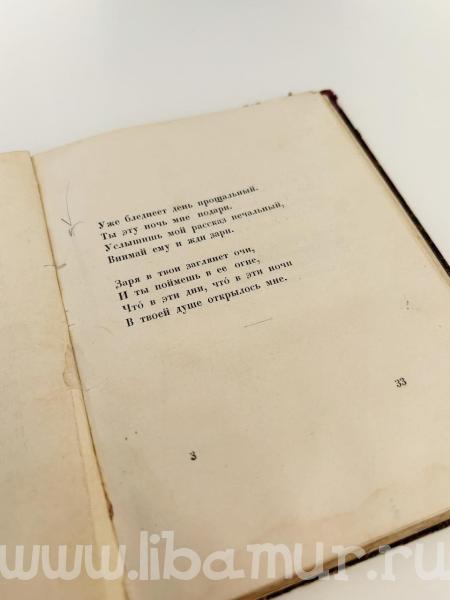 Уже бледнеет день прощальный.
Ты эту ночь мне подари.
Услышишь мой рассказ печальный,
Внимай ему и жди зари.
Заря в твои заглянет очи,
И ты поймешь в ее огне,
Что́ в эти дни, что́ в эти ночи
В твоей душе открылось мне.
33
3
www.libamur.ru